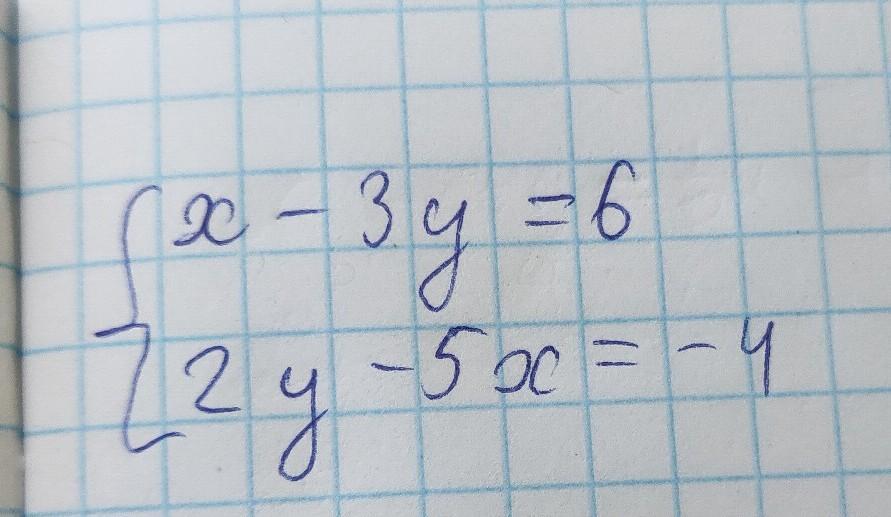 x - 3y = 6
2y - 5x = -4